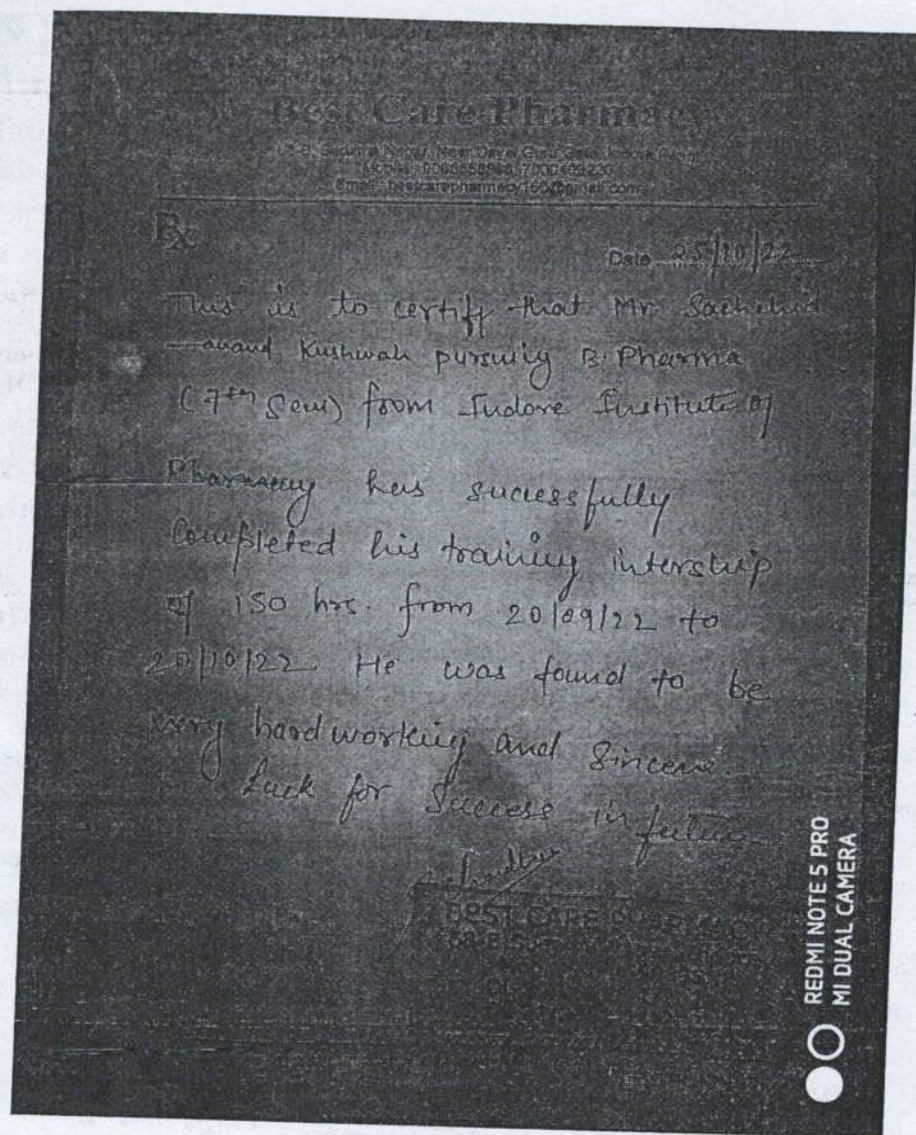 Best Care Pharmacy
Near Dayal Guru Gate, Indore
Mobile
Email : bestcarepharmacy160@gmail.com
Rx
Date 25/10/22
This is to certify that Mr. Sachchid
-anand Kushwah pursuing B. Pharma
(7th Sem) from Indore Institute of
Pharmacy has successfully
Completed his training intership
of 150 hrs. from 20/09/22 to
20/10/22. He was found to be
very hardworking and Sincere.
Luck for Success in future
BEST CARE
REDMI NOTE 5 PRO
MI DUAL CAMERA